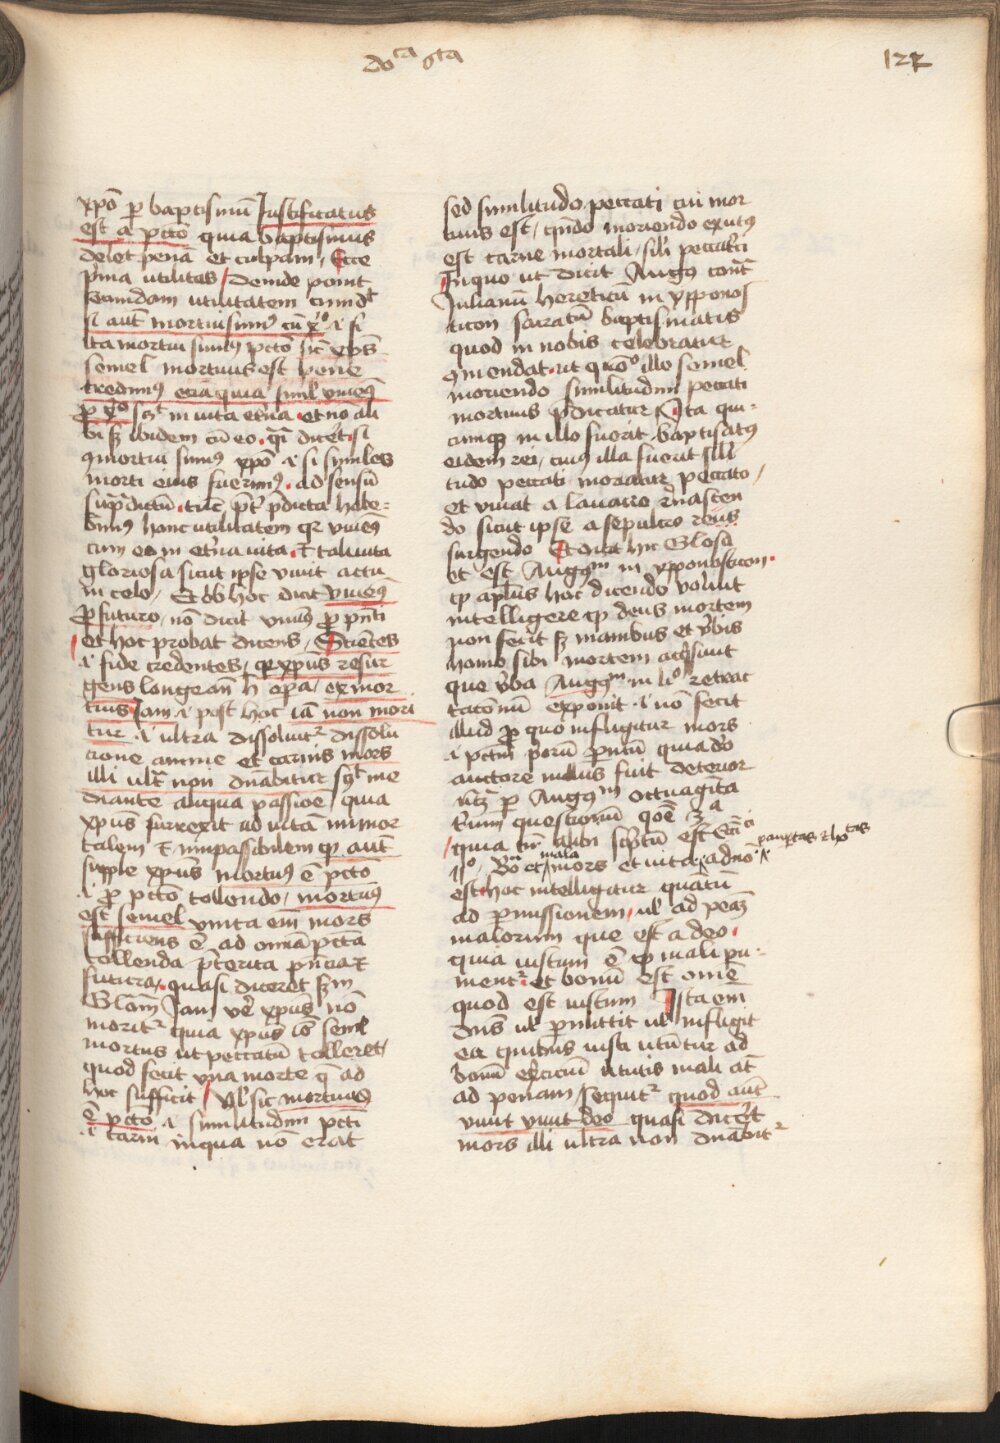 do^ca 6^ta
122
xp̄o p baptismū Iustificatus
est a pctō quia baptismus
delet penā et culpam, Ecce
p̄ma utilitas / Deinde ponit
secundam utilitatem cum d^t
si aut̄ mortui sum⁹ cū x^o .i. si
ita mortui simus pctō sic̄ xp̄s
semel mortuus est bene
credimus etiā quia simul viuem⁹
p̄ x^o sc^t in vita etn̄a . et nō ali
bi sꝫ ibidem cū eo . q̄i dic̄et . si
9mortui sum⁹ xp̄o .i. si similes
morti eius fuerim⁹ . ad sensū
sup̄dictū . tūc p̄t p̄dicta habe-
bim⁹ hanc utilitatem qꝛ viuem⁹
cum eo in et̄na vita . ī tali vita
gloriosa sicut ipse viuit actu
in celo, Et ob hoc dicit viuem⁹
p̄ futuro, nō dicit viuim⁹ p̄ pn̄ti
Et hoc probat dicens, Scientes
.i. fide credentes, qꝛ xp̄us resur
gens ex mor
tuis Iam .i. post hoc iā non mori
tur .i. ultra dissoluit^r dissolu
cione anime et carnis mors
illi ult^a non dn̄abitur sc^t me
diante aliqua passiōe, quia
xp̄us surrexit ad vitā inmor
talem ⁊ impassibilem qꝫ aut̄
supple xp̄us mortu⁹ ē pctō
.i. p̄ pctō tollendo, mortuus
est semel unica em̄ mors
sufficiens ē ad om̄ia pctā
tollenda p̄terita pn̄cia ⁊
futura, quasi diceret sꝫm
Glosam Iam ve^r xp̄us nō
morit^r quia xp̄us iō seml
mortus ut peccatū tolleret,
quod fecit una morte q̄ ad
hoc sufficit / Ul̄ sic mortuus
ē pctō .i. similitudini pcti
.i. carni in qua nō erat
sed similitudo peccati cui mor
tuus est, qn̄do moriendo exut⁹
est carne mortali, sil̄i peccat̄ci
In quo ut dicit Aug⁹ cont^a
Iulianū hereticū in ypponos
ticon sacratū baptismatis
quod in nobis celebratur
9mendat . ut quō illo semel
moriendo similitudini peccati
mortuus p̄dicatur Ita qui-
cumqꝫ in illo fuerit baptisat⁹
eidem rei, cui⁹ illa fuerit sil̄i
tudo peccati moriatur peccato,
et viuat a lauacro renascen
do sicut ipse a sepulcro reus
surgendo Et dicit hic Glosa
et est Aug⁹^m in ypponosticon .
qꝫ apl̄us hoc dicendo voluit
intelligere qꝫ deus mortem
non fecit sꝫ manibus et v̄bis
homo sibi mortem accersiuit
que v̄ba Aug⁹^m in li^o retrac
tacōnū exponit .i. nō fecit
illud p̄ quo infligitur mors
.i. pctm̄ p̄orū pn̄tum quia d̄o
auctore nullus fuit deterior
ut^r p Aug⁹^m octuagīta
triū questionū qōe 3^a
quia tn̄ alibi sc̄ptū est Ecc̄i
11^o, Bo^na et mala mors et vita, a dn̄o paupertas ⁊ ho^tas
est hoc intelligitur quātū
ad permissionem, ul̄ ad penā
malorum que est a deo .
quia iustum ē qꝫ mali pu-
nient^r . et bonū est om̄e
quod est iustum Ista em̄
dn̄s ul̄ permittit ul̄ infligit
ea quibus iusti utūtur ad
bonū ex̄rciciū v̄tutis mali at̄
ad penam / sequit^r quod aut̄
viuit viuit deo quasi dic̄et
mors illi ultra non dn̄abit^r